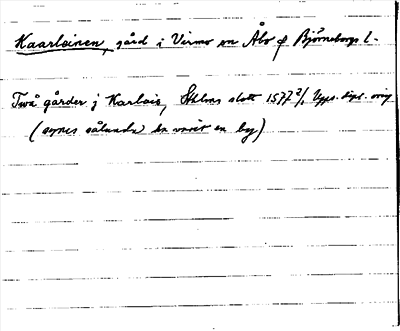 Kaarlainen, gård i Virmo sn Åbo o Björneborgs l.
Två gårder j Karlais, Sthlms slott 1577 2/1 Upps. dipl. orig
(synes således ha varit en by)